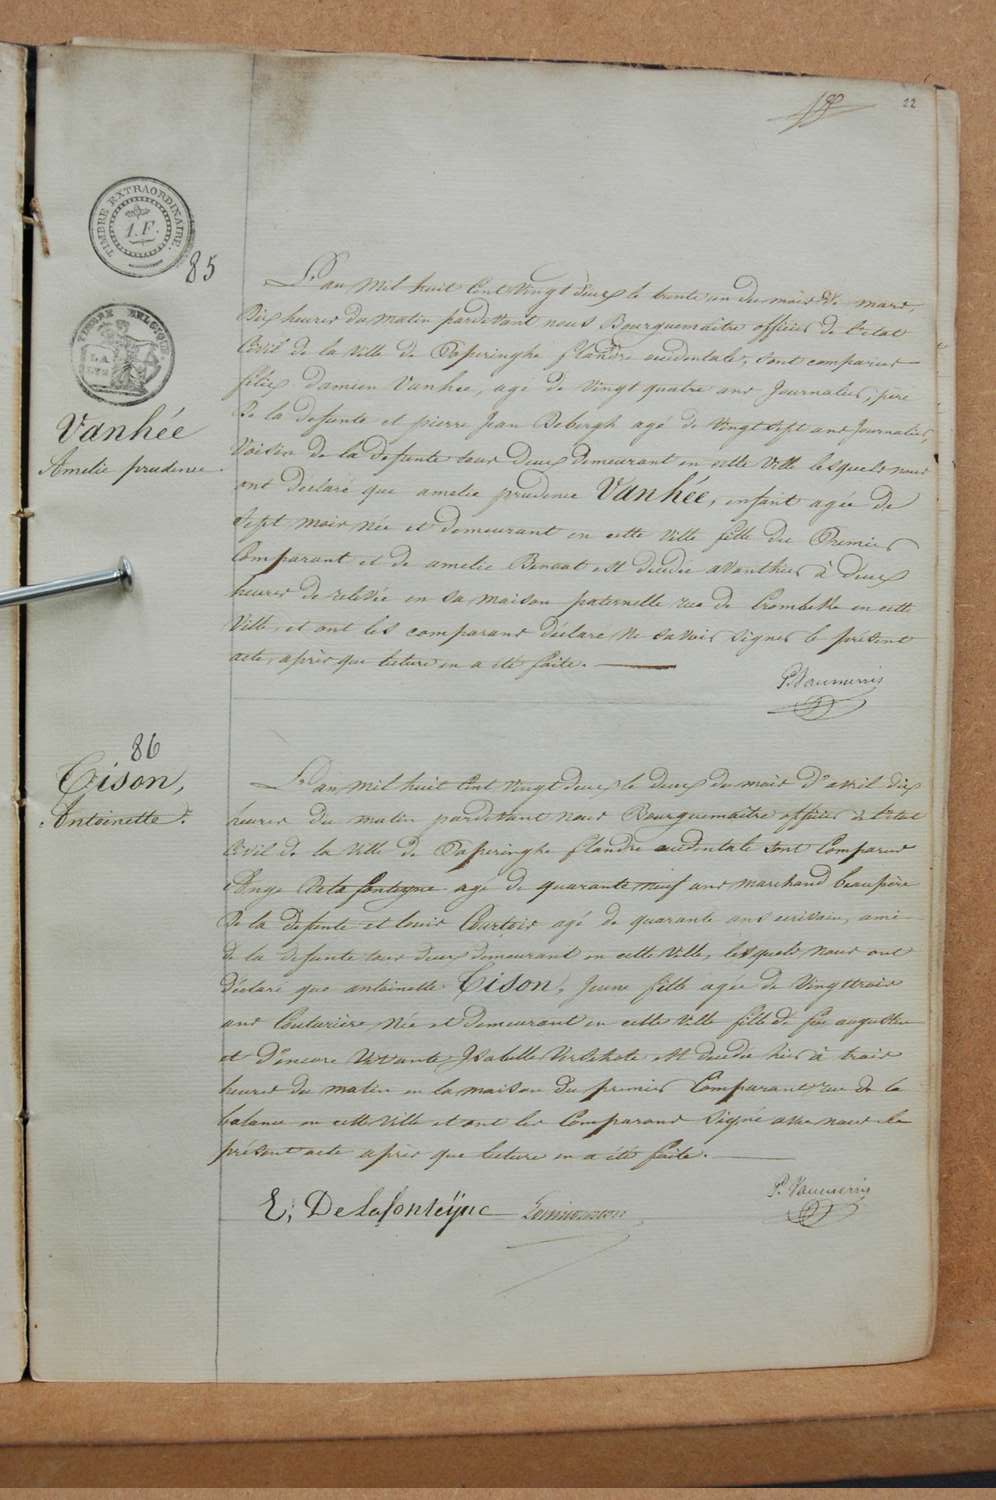 22
TIMBRE EXTRAORDINAIRE.
1.F.
TIMBRE BELGIQUE
85
Vanhée
Amelie prudence
L'an mil huit Cent Vingt deux le trente un du mois de mars,
Dix heures du matin pardevant nous Bourguemaitre officier de l'etat
Civil de la Ville de Poperinghe flandre occidentale, sont comparus
felix Damien Vanhee, agé de Vingt quatre ans Journalier, père
De la defunte et pierre Jean Debergh agé de Vingt sept ans Journalier,
Voisin de la defunte tous deux demeurant en cette Ville lesquels nous
ont declaré que amelie prudence Vanhée, enfant agée de
Sept mois née et demeurant en cette Ville fille du Premier
Comparant et de amelie Benoot est decedee avanthier à deux
heures de relevée en sa maison paternelle rue de Crombeke en cette
Ville, et ont les comparans declaré ne savoir signer le présent
acte, après que lecture en a été faite.
86
Cison,
Antoinette.
L'an mil huit Cent Vingt deux le deux du mois d'avril dix
heures du matin pardevant nous Bourguemaitre officier de l'etat
Civil de la Ville de Poperinghe flandre occidentale sont Comparus
Ange De la fonteyne agé de quarante neuf ans marchand beaupère
De la defunte et louis Courtois agé de quarante ans ecrivain, ami
de la defunte tous deux demeurant en cette Ville, lesquels nous ont
Déclaré que antoinette Cison, Jeune fille agée de Vingt trois
ans Couturière née et demeurant en cette Ville fille de feu augustin
et d'encore Vivante Isabelle est decedée hier à trois
heures du matin en la maison du premier Comparant rue de la
balance en cette Ville et ont les Comparans Signé avec nous le
présent acte après que lecture en a été faite.
E, De Lafonteÿne